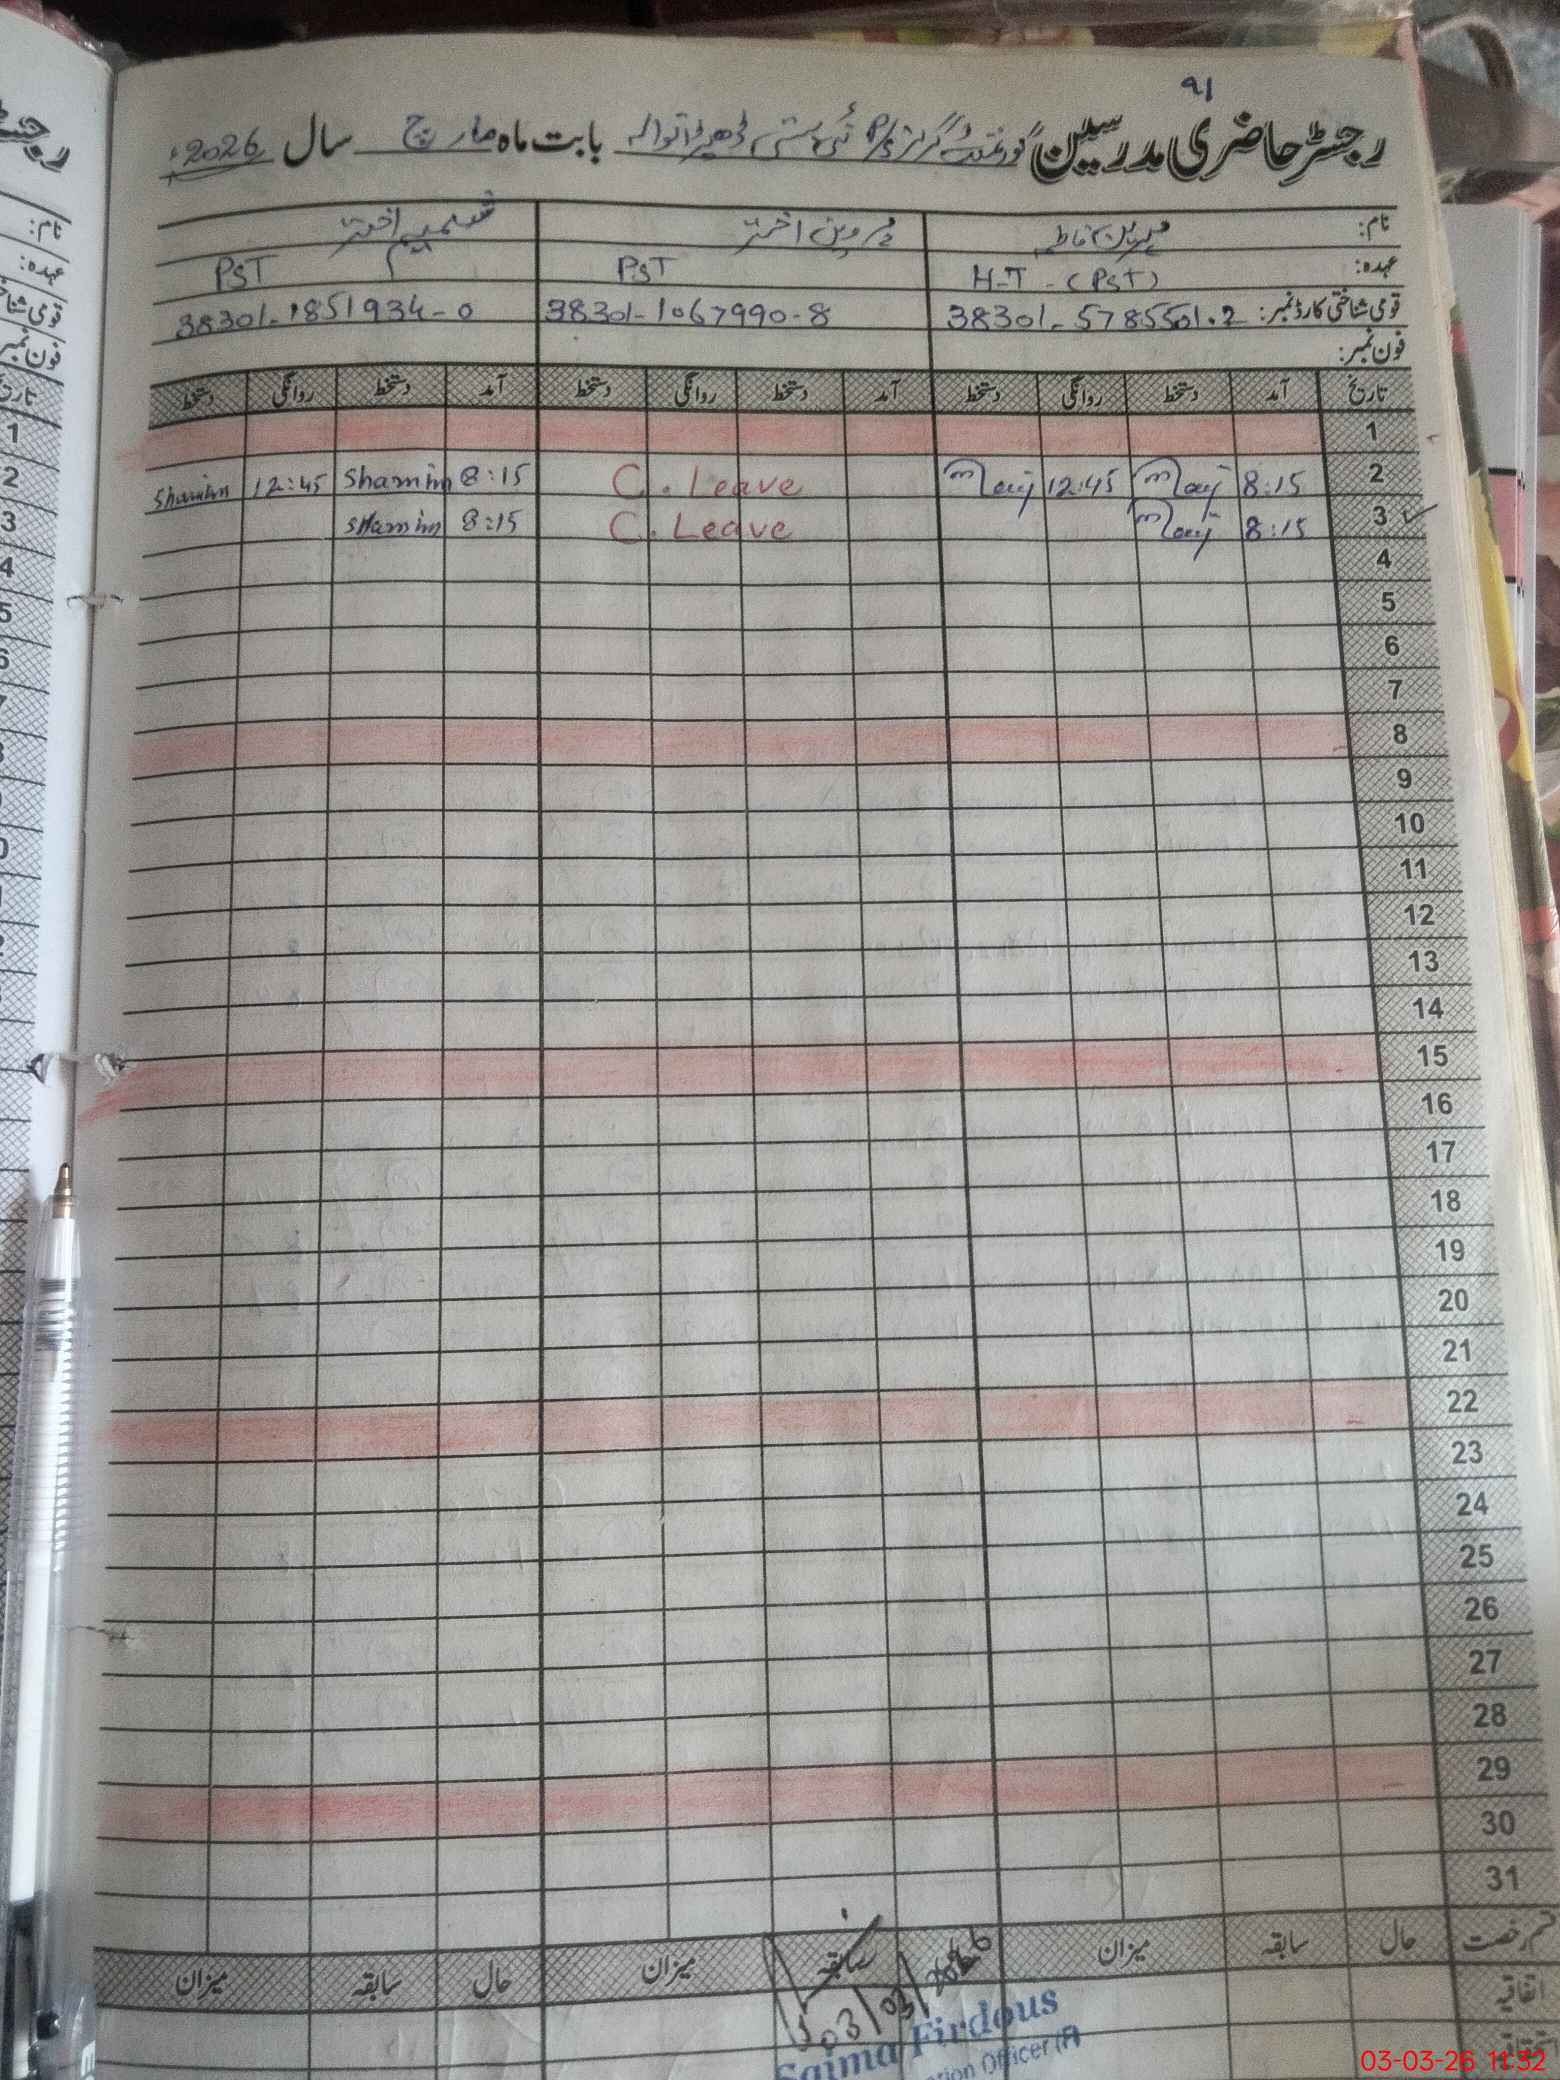 ۹۱
رجسٹر حاضری مدرسین گورنمنٹ گرلز P/S نئی بستی بابت ماہ مارچ سال 2026ء
نام: فاطمہ پروین اختر شمیم اختر
عہدہ: H-T-(PST) PST PST
قومی شناختی کارڈ نمبر: 38301-5785501-2 38301-1067990-8 38301-1851934-0
فون نمبر:
تاریخ آمد دستخط روانگی دستخط آمد دستخط روانگی دستخط آمد دستخط روانگی دستخط
1
2 8:15 12:45 C. Leave 8:15 Shamim 12:45 Shamim
3 8:15 C. Leave 8:15 Shamim
4
5
6
7
8
9
10
11
12
13
14
15
16
17
18
19
20
21
22
23
24
25
26
27
28
29
30
31
قسم رخصت حال سابقہ میزان حال سابقہ میزان حال سابقہ میزان
اتفاقیہ
03/03/2026
Saima Firdous
Officer (F)
03-03-26 11:32
رجسٹر
نام:
عہدہ:
قومی شناختی
فون نمبر
تاریخ
1
2
3
4
5
6